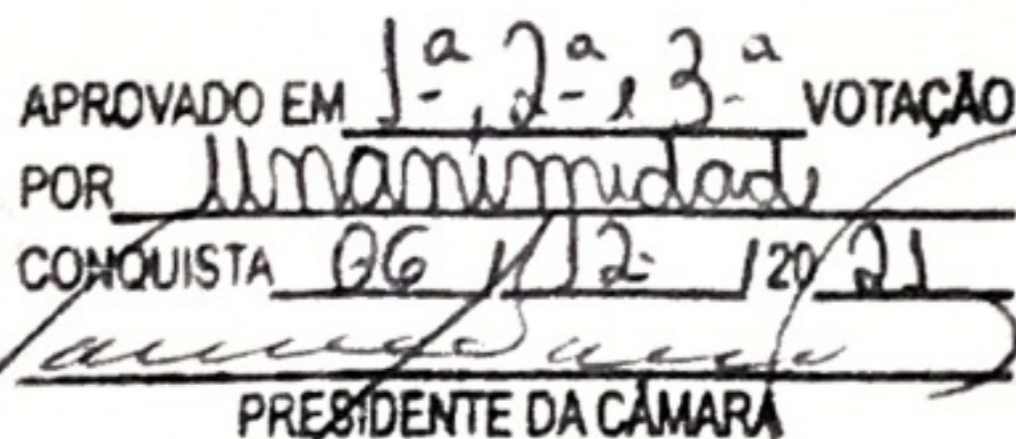 APROVADO EM 1ª, 2ª e 3ª VOTAÇÃO
POR Unanimidade
CONQUISTA 06 / 12 / 20 21
PRESIDENTE DA CÂMARA